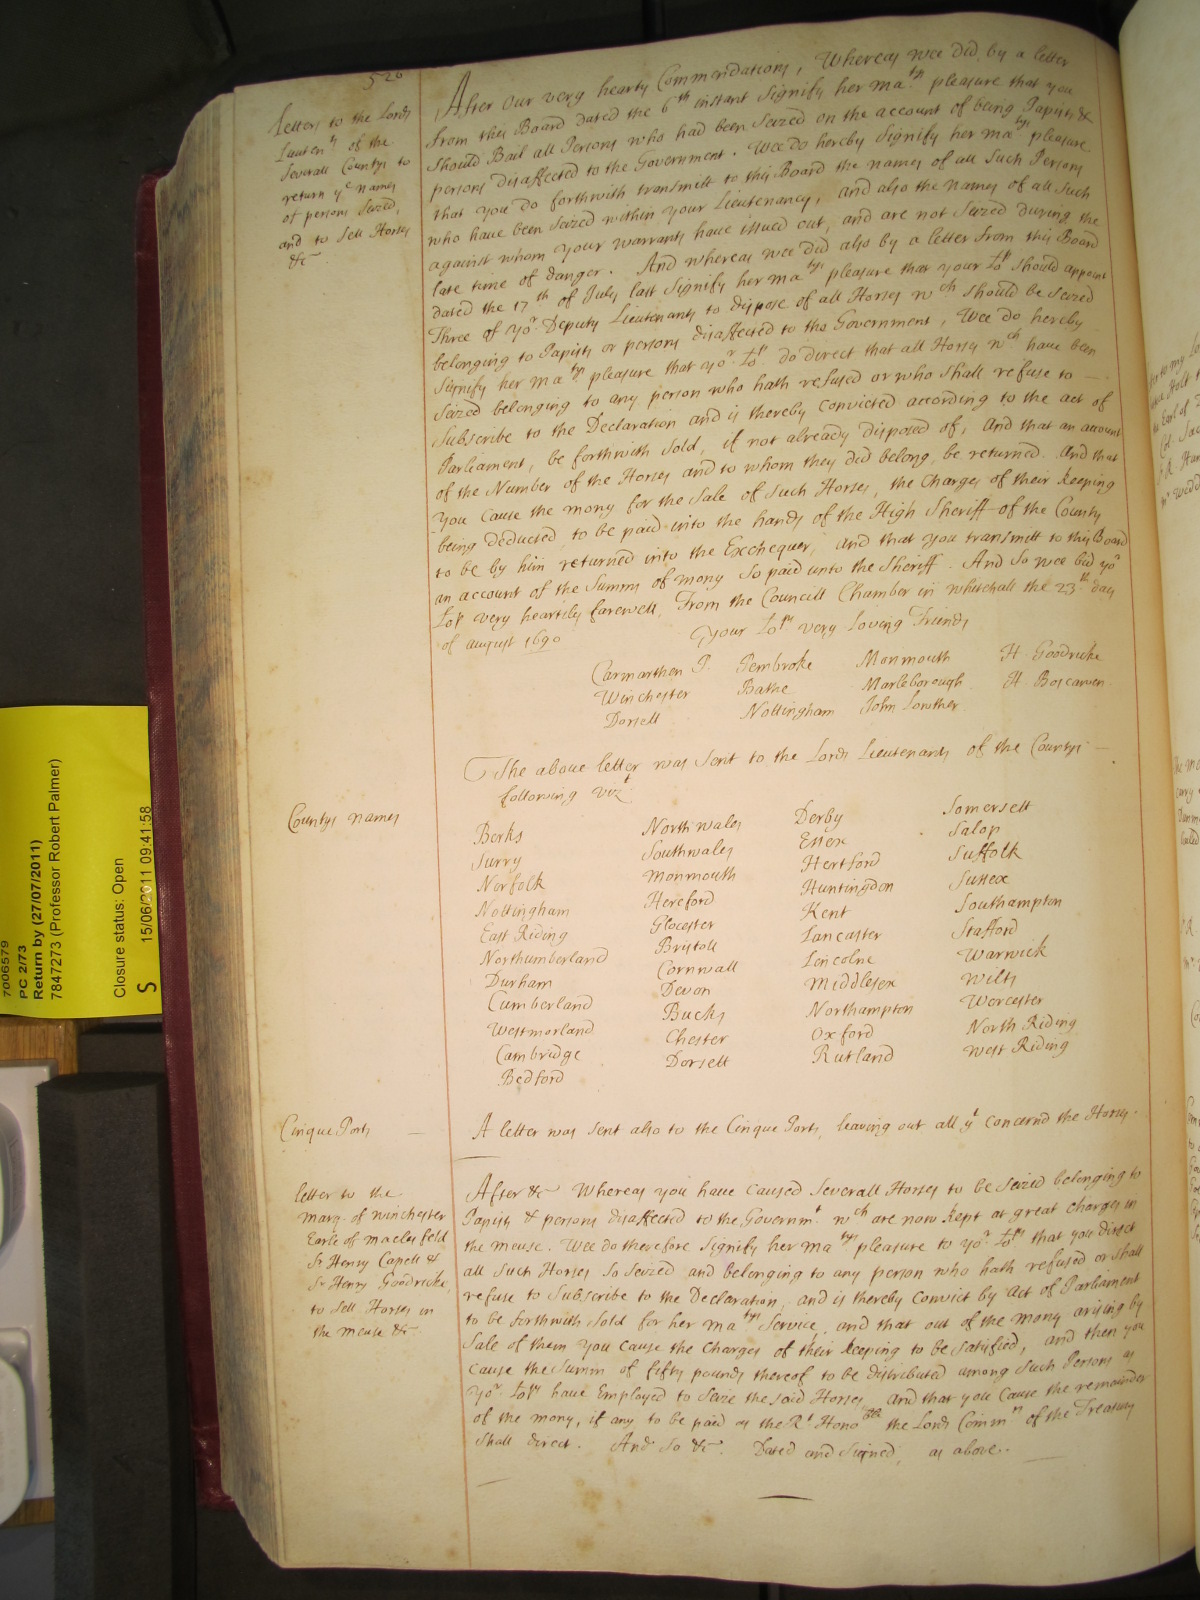 520
Letters to the Lords
Lieuten.ts of the
Severall Countys to
return ye names
of persons seized,
and to sell Horses
&c
After Our very hearty Commendations, Whereas wee did by a letter
from this Board dated the 6th instant signify her maty's pleasure that you
should Bail all Persons who had been seized on the account of being Papists &
persons disaffected to the Government. Wee do hereby signify her maty's pleasure
that you do forthwith transmitt to this Board the names of all such Persons
who have been seized within your Lieutenancy, and also the names of all such
against whom your warrants have issued out, and are not seized during the
late time of danger. And whereas wee did also by a letter from this Board
dated the 17th of July last signify her maty's pleasure that your Lop should appoint
Three of yor Deputy Lieutenants to dispose of all Horses wch should be seized
belonging to Papists or persons disaffected to the Government, Wee do hereby
signify her maty's pleasure that yor Lop do direct that all Horses wch have been
seized belonging to any person who hath refused or who shall refuse to —
subscribe to the Declaration and is thereby convicted according to the act of
Parliament, be forthwith sold, if not already disposed of, and that an account
of the Number of the Horses and to whom they did belong, be returned. And that
you cause the mony for the sale of such Horses, the charges of their keeping
being deducted, to be paid into the hands of the High Sheriff of the County
to be by him returned into the Exchequer, and that you transmitt to this Board
an account of the summs of mony so paid unto the Sheriff. And so wee bid yor
Lop very heartily farewell, From the Councill Chamber in whitehall the 23th day
of august 1690
Your Lops very loving Friends
Carmarthen P. Pembroke Monmouth H. Goodricke
Winchester Bathe Marleborough H. Boscawen
Dorsett Nottingham John Lowther
The above letter was sent to the Lords Lieutenants of the Countys —
following vizt
Countys names
Berks Northwales Derby Somersett
Surry Southwales Essex Salop
Norfolk Monmouth Hertford Suffolk
Nottingham Hereford Huntingdon Sussex
East Riding Glocester Kent Southampton
Northumberland Bristoll Lancaster Stafford
Durham Cornwall Lincolne Warwick
Cumberland Devon Middlesex Wilts
Westmorland Bucks Northampton Worcester
Cambridge Chester Oxford North Riding
Bedford Dorsett Rutland West Riding
Cinque Ports —
A letter was sent also to the Cinque Ports, leaving out all yt concernd the Horses.
letter to the
marq. of winchester
Earle of macclesfeld
Sr Henry Capell &
Sr Henry Goodricke,
to sell Horses in
the meuse &c
After &c Whereas you have caused severall Horses to be seized belonging to
Papists & persons disaffected to the Governmt. wch are now kept at great charges in
the meuse. Wee do therefore signify her maty's pleasure to yor Lops that you direct
all such Horses so seized and belonging to any person who hath refused or shall
refuse to subscribe to the Declaration, and is thereby convict by Act of Parliament
to be forthwith sold for her maty's service, and that out of the mony arising by
sale of them you cause the charges of their keeping to be satisfied, and then you
cause the summ of fifty pounds thereof to be distributed among such Persons as
yor Lops have Employed to seize the said Horses, and that you cause the remainder
of the mony, if any to be paid as the Rt. Honoble the Lords Commrs of the Treasury
shall direct. And so &c. Dated and signed, as above.
7006579
PC 2/73
Return by (27/07/2011)
7847273 (Professor Robert Palmer)
Closure status: Open
S 15/06/2011 09:41:58